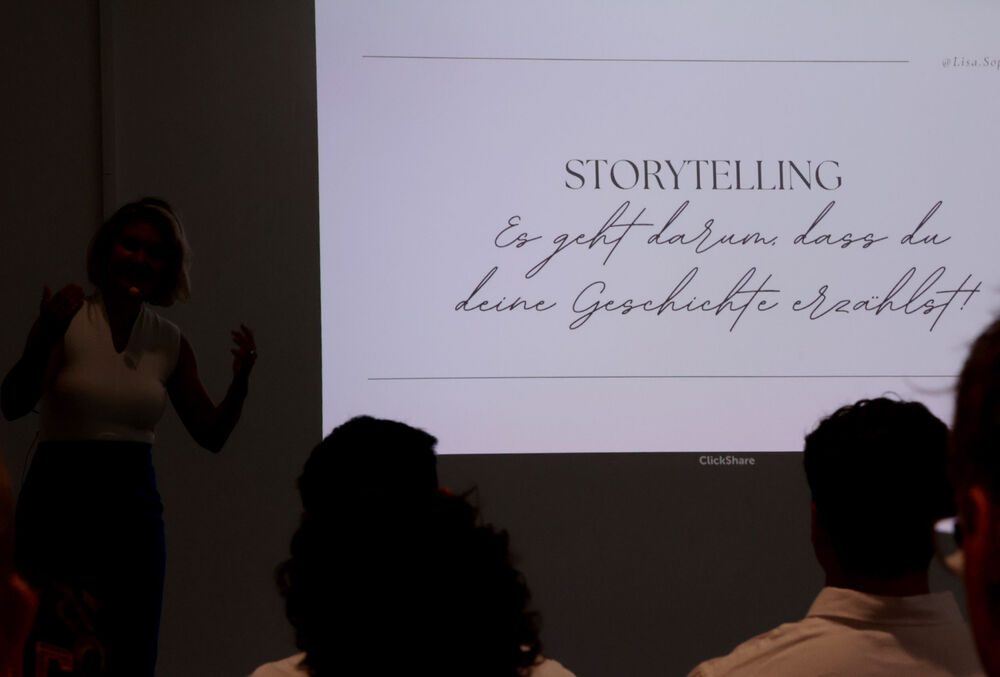 @Lisa.Sop
STORYTELLING
Es geht darum, dass du
deine Geschichte erzählst!
ClickShare